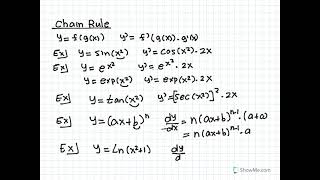 Chain Rule
y = f(g(x))   y' = f'(g(x)) · g'(x)
Ex] y = sin(x²)   y' = cos(x²) · 2x
Ex] y = e^x²   y' = e^x² · 2x
y = exp(x²)   y' = exp(x²) · 2x
Ex] y = tan(x²)   y' = [sec(x²)]² · 2x
Ex] y = (ax+b)ⁿ   dy/dx = n(ax+b)ⁿ⁻¹ · (a+0)
= n(ax+b)ⁿ⁻¹ · a
Ex] y = Ln(x²+1)   dy/d
ShowMe.com